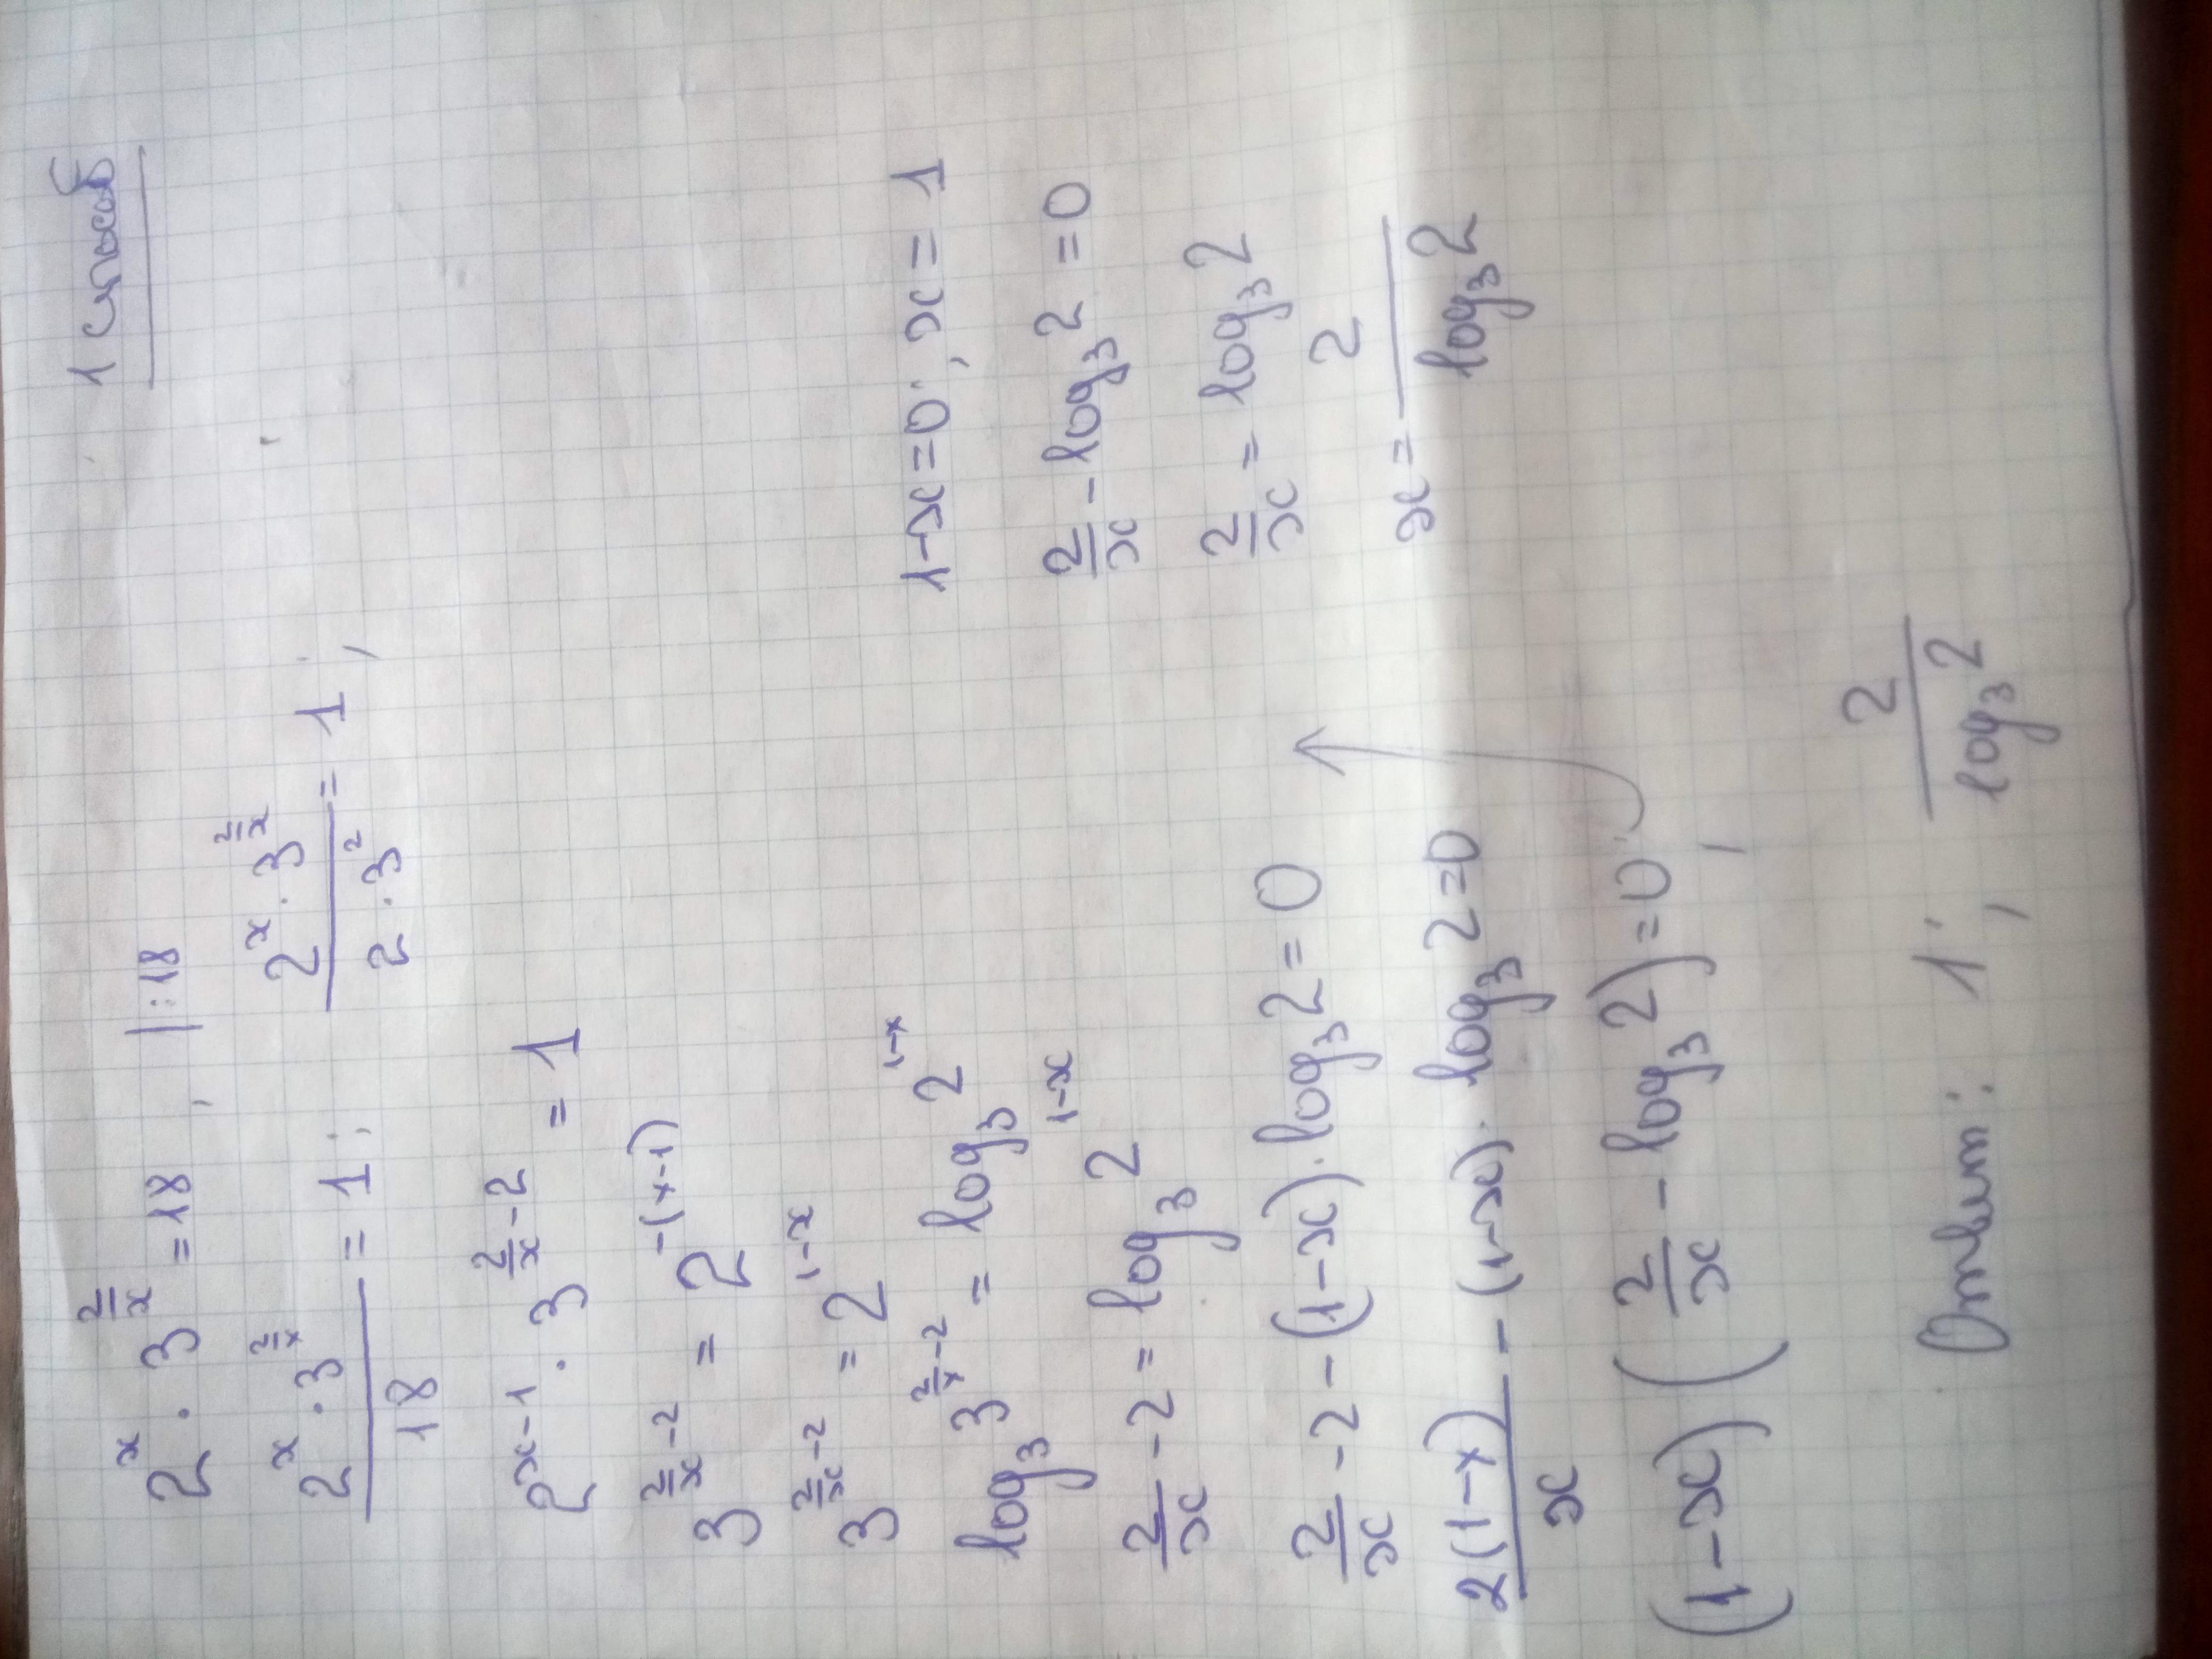 1 способ
2^x · 3^(2/x) = 18, | :18
(2^x · 3^(2/x))/18 = 1; (2^x · 3^(2/x))/(2 · 3^2) = 1;
2^(x-1) · 3^(2/x - 2) = 1
3^(2/x - 2) = 2^(-(x-1))
3^(2/x - 2) = 2^(1-x)
log₃ 3^(2/x - 2) = log₃ 2^(1-x)
2/x - 2 = log₃ 2^(1-x)
2/x - 2 - (1-x) · log₃ 2 = 0
2(1-x)/x - (1-x) · log₃ 2 = 0
(1-x)(2/x - log₃ 2) = 0;
1-x=0; x=1
2/x - log₃ 2 = 0
2/x = log₃ 2
x = 2/(log₃ 2)
Ответ: 1; 2/(log₃ 2)